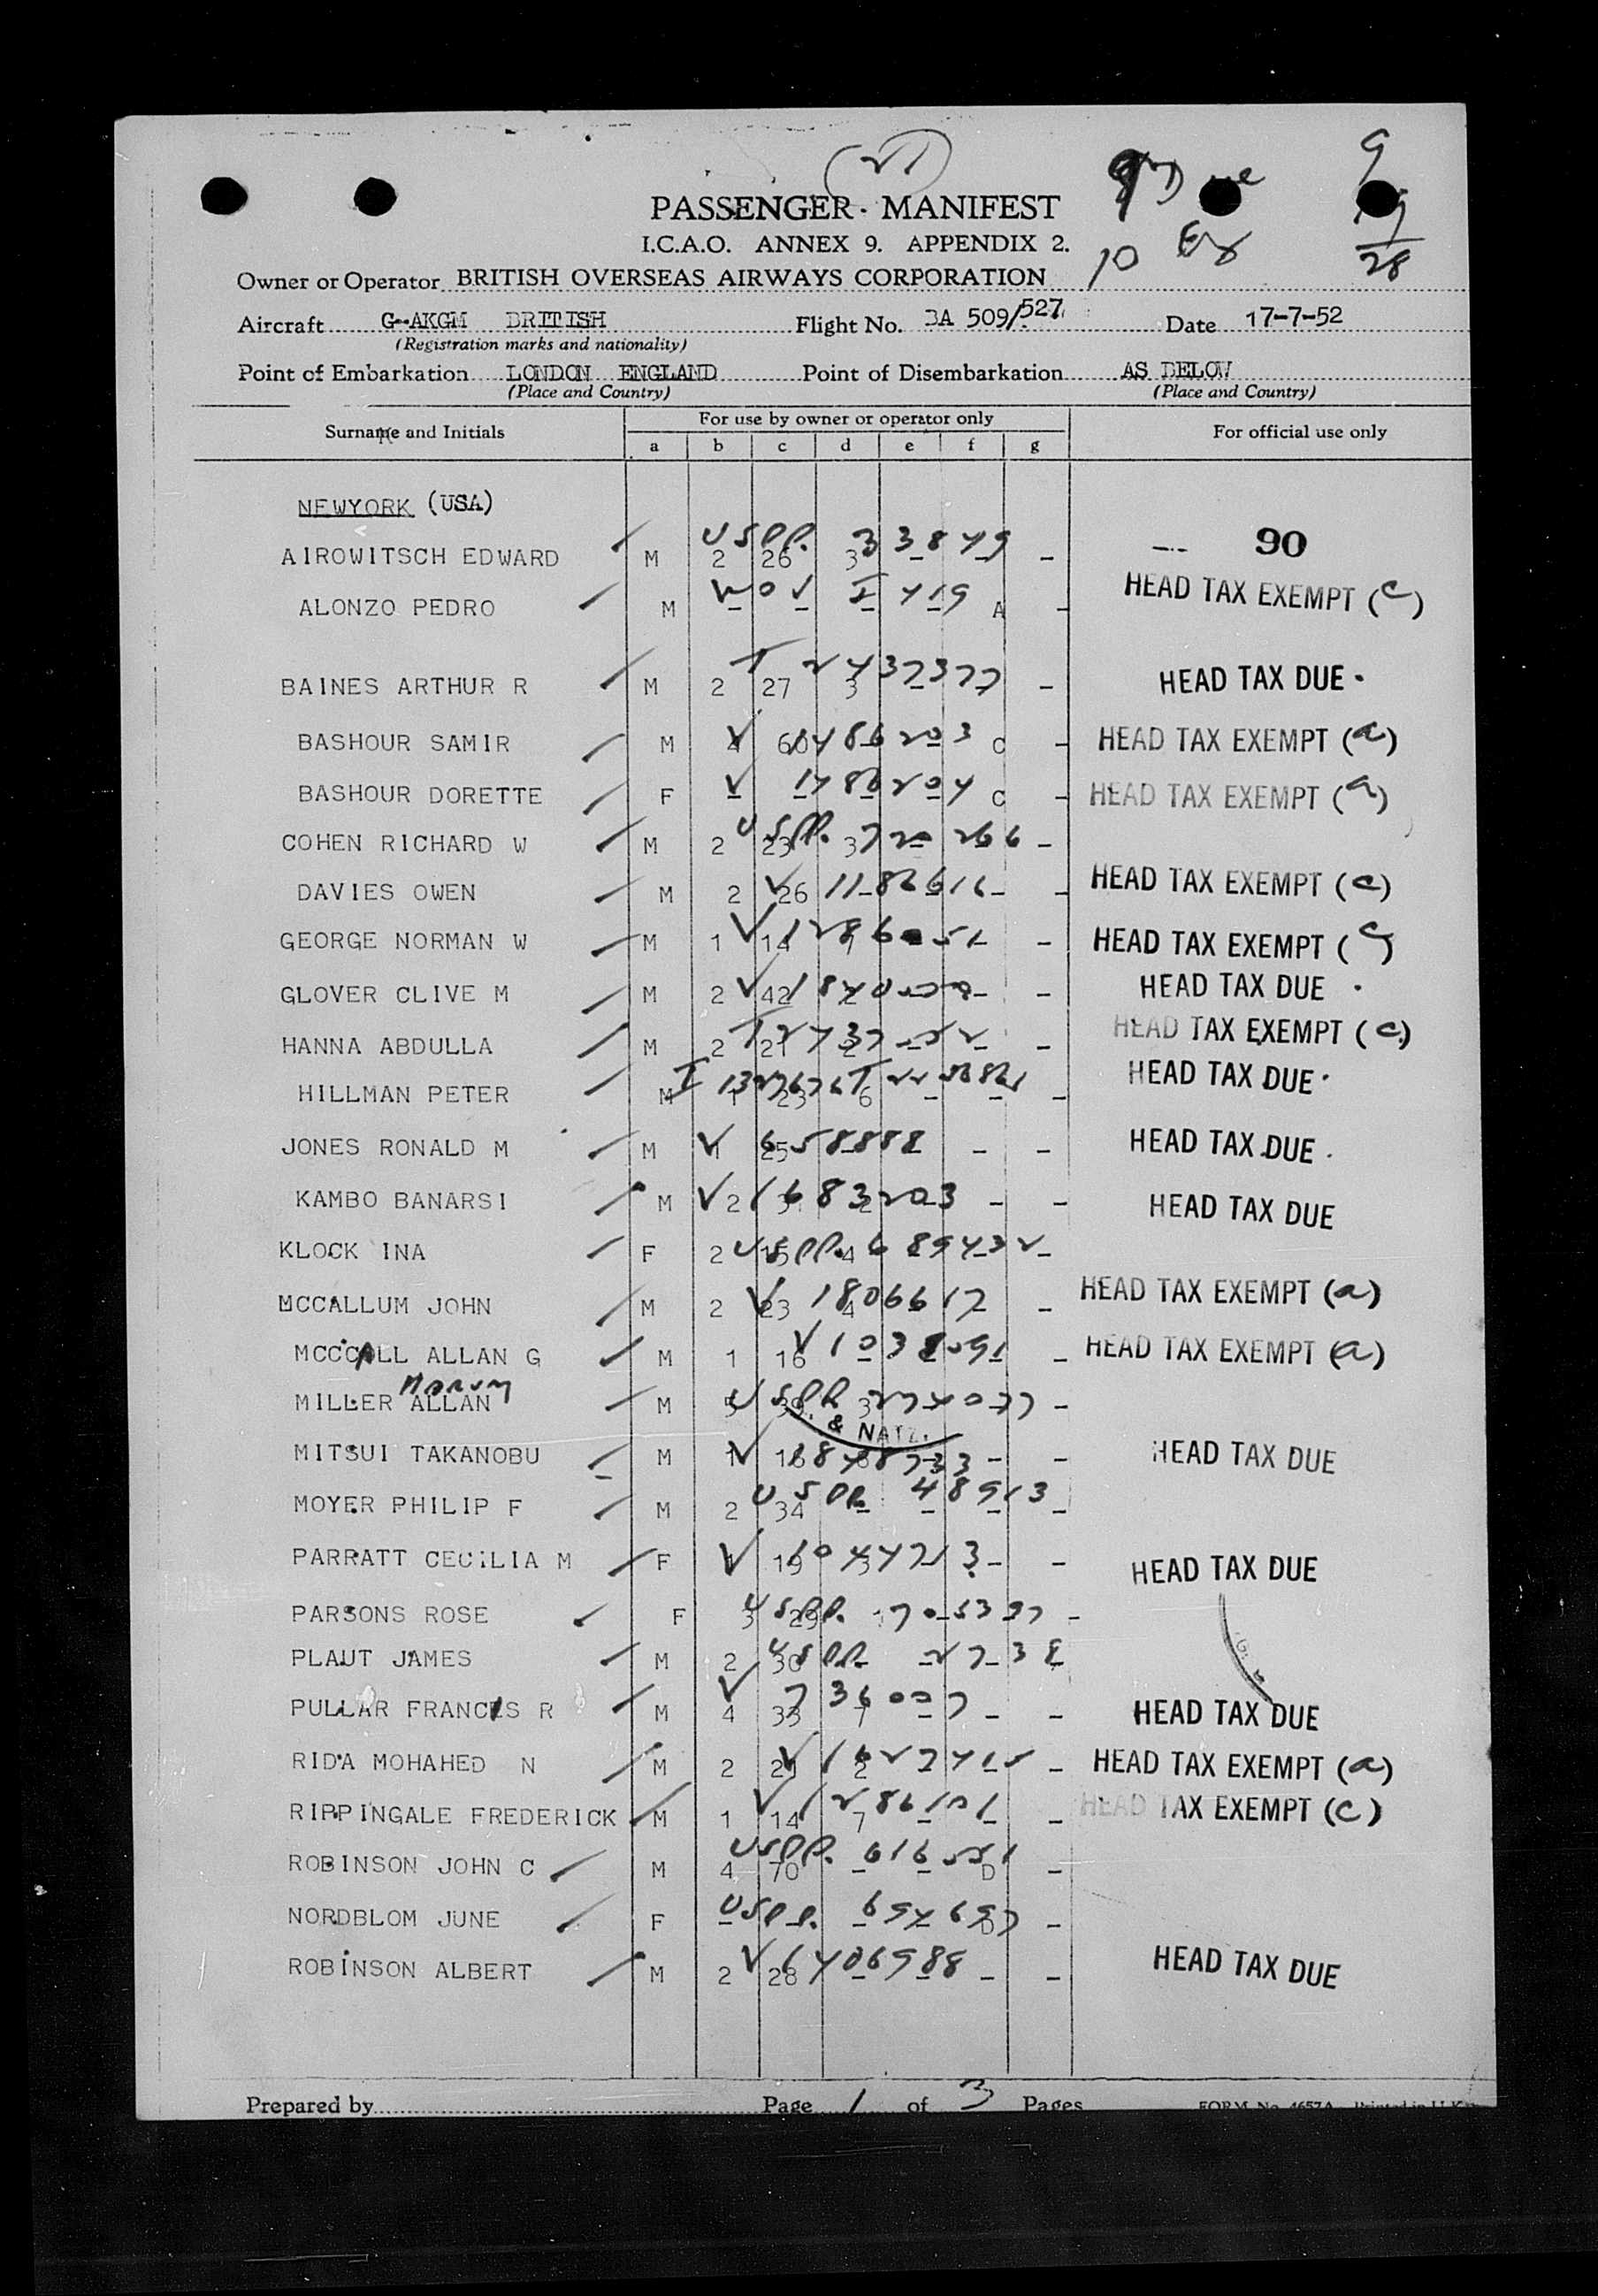 (21)
9 Due
9
10 Ex
19
28
PASSENGER MANIFEST
I.C.A.O. ANNEX 9. APPENDIX 2.
Owner or Operator BRITISH OVERSEAS AIRWAYS CORPORATION
Aircraft G-AKGM BRITISH Flight No. BA 509/527 Date 17-7-52
(Registration marks and nationality)
Point of Embarkation LONDON ENGLAND Point of Disembarkation AS BELOW
(Place and Country) (Place and Country)
Surname and Initials For use by owner or operator only For official use only
a b c d e f g
NEWYORK (USA)
AIROWITSCH EDWARD M 2 26 3 - - - USPP. 33849 90
ALONZO PEDRO M - - - - A - I 419 HEAD TAX EXEMPT (c)
BAINES ARTHUR R M 2 27 3 - - - T 2437377 HEAD TAX DUE
BASHOUR SAMIR M C - V 1486203 HEAD TAX EXEMPT (a)
BASHOUR DORETTE F - - - - C - V 1486204 HEAD TAX EXEMPT (a)
COHEN RICHARD W M 2 23 3 - - - USPP. 720266
DAVIES OWEN M 2 26 - - - - V HEAD TAX EXEMPT (c)
GEORGE NORMAN W M 1 14 7 - - - V HEAD TAX EXEMPT (c)
GLOVER CLIVE M M 2 42 2 - - - V HEAD TAX DUE
HANNA ABDULLA M 2 21 2 - - - T HEAD TAX EXEMPT (c)
HILLMAN PETER M 1 23 6 - - - HEAD TAX DUE
JONES RONALD M M 1 25 - - - - V 658888 HEAD TAX DUE
KAMBO BANARSI M 2 - - - V 1683203 HEAD TAX DUE
KLOCK INA F 2 15 4 - - - USPP. 689432
MCCALLUM JOHN M 2 23 4 - V 1806617 HEAD TAX EXEMPT (a)
MCCCALL ALLAN G M 1 16 - - - - V HEAD TAX EXEMPT (a)
MILLER ALLAN M 5 39 3 - - - USPP
& NATZ.
MITSUI TAKANOBU M 1 - - - V HEAD TAX DUE
MOYER PHILIP F M 2 34 - - - - USPP. 48913
PARRATT CECILIA M F 1 19 3 - - V HEAD TAX DUE
PARSONS ROSE F 3 29 - - - USPP.
PLAUT JAMES M 2 30 - - - USPP.
PULLAR FRANCIS R M 4 33 7 - - - V HEAD TAX DUE
RIDA MOHAHED N M 2 21 2 - - - V HEAD TAX EXEMPT (a)
RIPPINGALE FREDERICK M 1 14 7 - - - V 1286101 HEAD TAX EXEMPT (c)
ROBINSON JOHN C M 4 70 - - D - USPP. 616551
NORDBLOM JUNE F - - - - D - USPP.
ROBINSON ALBERT M 2 28 - - - - V HEAD TAX DUE
Prepared by Page 1 of 3 Pages FORM No. 4657A Printed in U.K.